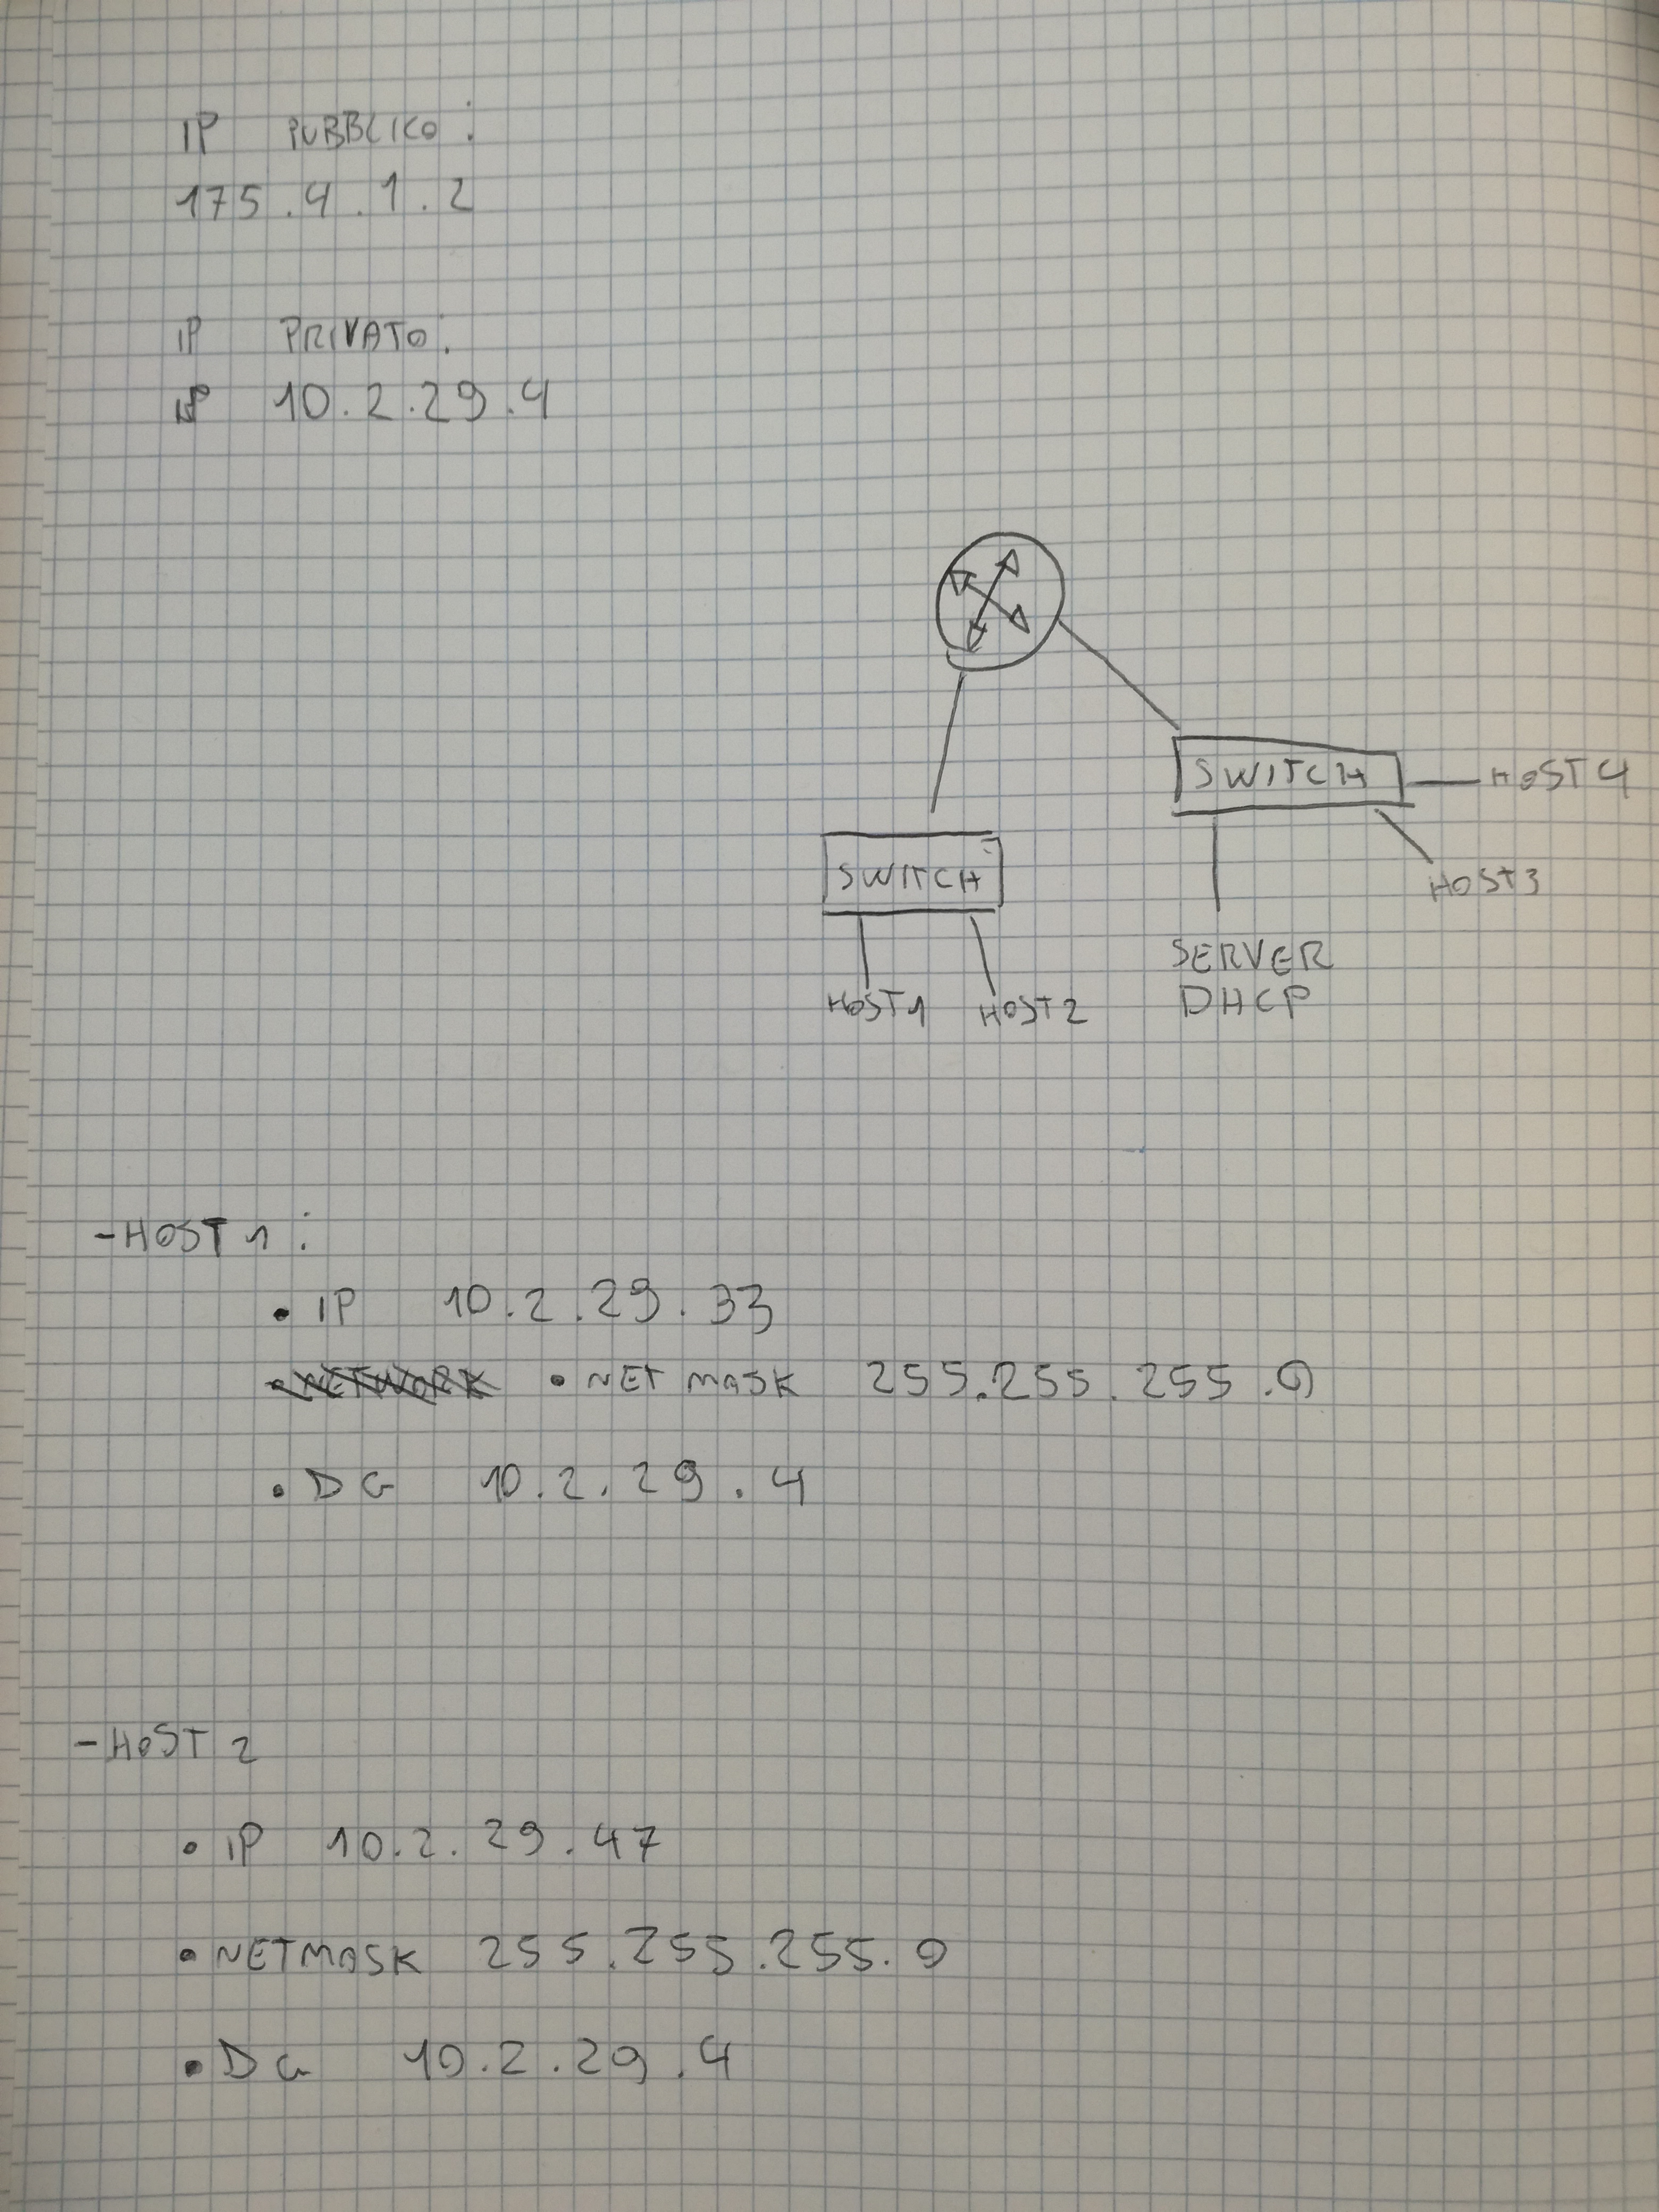 IP PUBBLIKO:
175.4.1.2
IP PRIVATO:
IP 10.2.29.4
SWITCH HOST 4
HOST 3
SWITCH
SERVER
DHCP
HOST1 HOST 2
-HOST 1:
• IP 10.2.29.33
• NETWORK • NET MASK 255.255.255.0
• DG 10.2.29.4
-HOST 2
• IP 10.2.29.47
• NETMASK 255.255.255.0
• DG 10.2.29.4